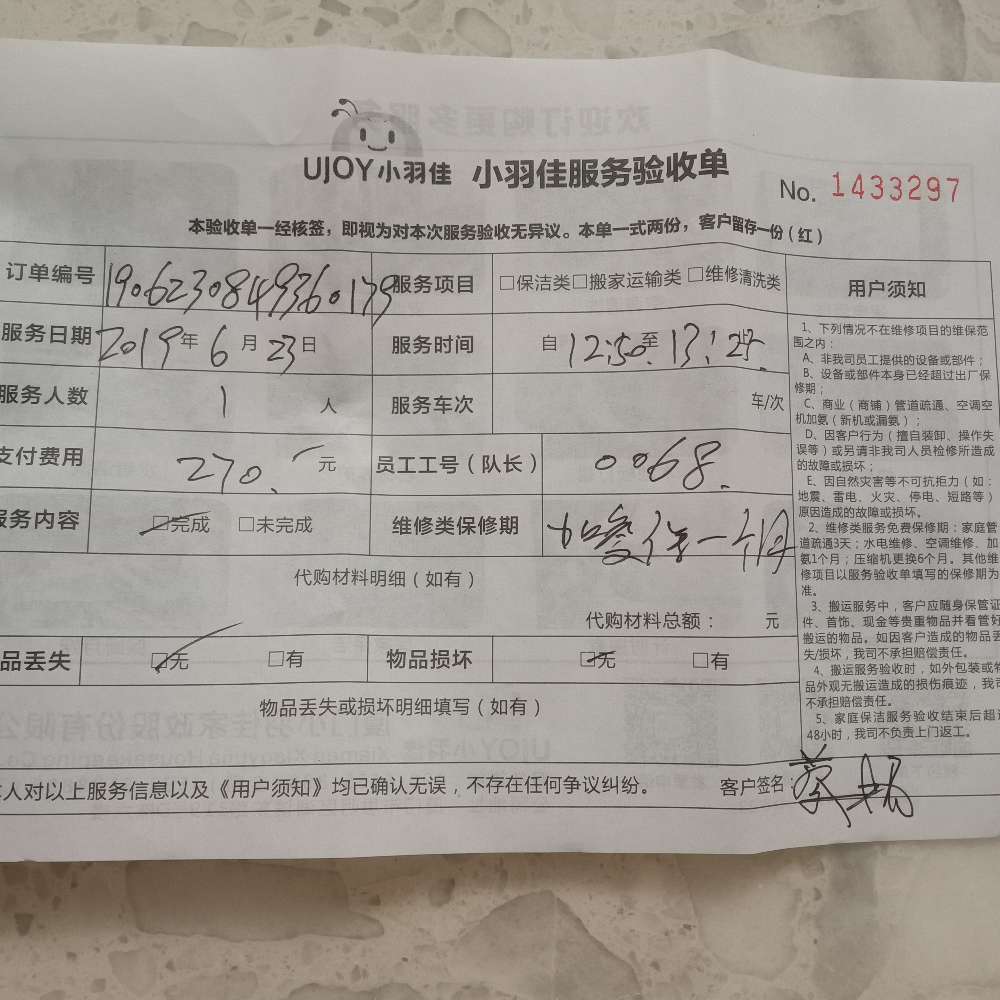 UJOY小羽佳 小羽佳服务验收单 No. 1433297
本验收单一经核签，即视为对本次服务验收无异议。本单一式两份，客户留存一份（红）
订单编号 1906230849360179 服务项目 □保洁类 □搬家运输类 □维修清洗类
服务日期 2019年6月23日 服务时间 自12:50至13:25止
服务人数 1人 服务车次 车/次
支付费用 270.元 员工工号（队长） 0068.
服务内容 □完成 □未完成 维修类保修期 加 保一个月
代购材料明细（如有）
代购材料总额： 元
品丢失 □无 □有 物品损坏 □无 □有
物品丢失或损坏明细填写（如有）
人对以上服务信息以及《用户须知》均已确认无误，不存在任何争议纠纷。 客户签名：
用户须知
1、下列情况不在维修项目的维保范
围之内：
A、非我司员工提供的设备或部件；
B、设备或部件本身已经超过出厂保
修期；
C、商业（商铺）管道疏通、空调空
机加氨（新机或漏氨）；
D、因客户行为（擅自装卸、操作失
误等）或另请非我司人员检修所造成
的故障或损坏；
E、因自然灾害等不可抗拒力（如：
地震、雷电、火灾、停电、短路等）
原因造成的故障或损坏。
2、维修类服务免费保修期：家庭管
道疏通3天；水电维修、空调维修、加
氨1个月；压缩机更换6个月。其他维
修项目以服务验收单填写的保修期为
准。
3、搬运服务中，客户应随身保管证
件、首饰、现金等贵重物品并看管好
搬运的物品。如因客户造成的物品丢
失/损坏，我司不承担赔偿责任。
4、搬运服务验收时，如外包装或物
品外观无搬运造成的损伤痕迹，我司
不承担赔偿责任。
5、家庭保洁服务验收结束后超过
48小时，我司不负责上门返工。